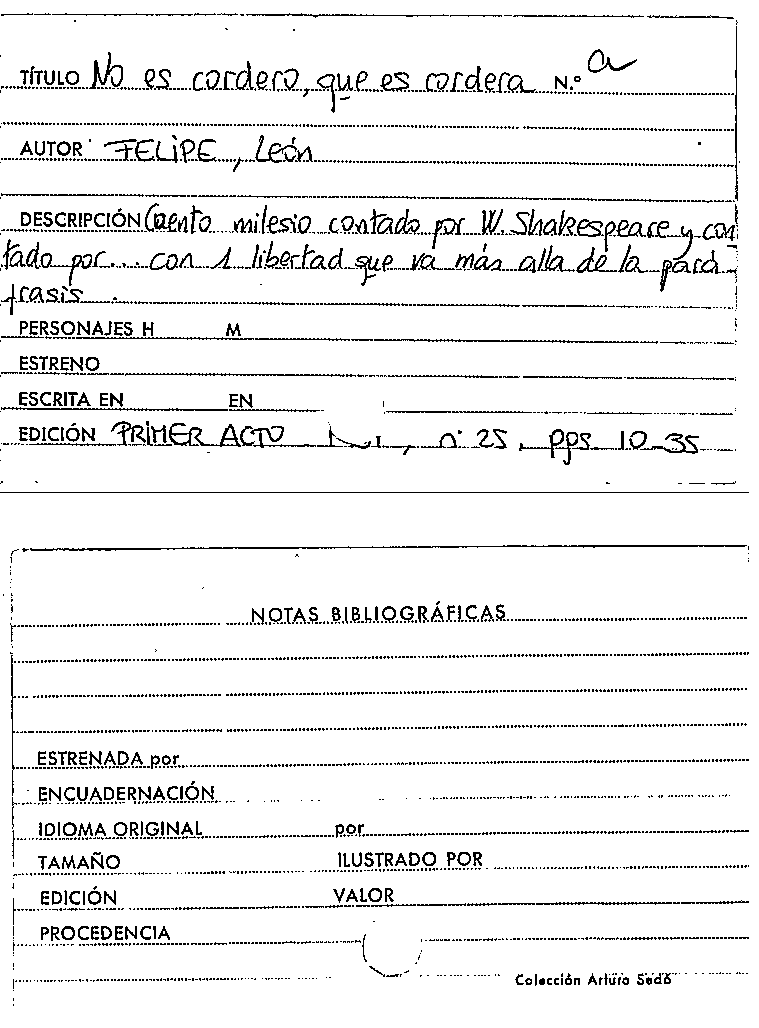 TÍTULO No es cordero, que es cordera N.º a
AUTOR FELIPE, León
DESCRIPCIÓN Cuento milesio contado por W. Shakespeare y con
tado por... con 1 libertad que va más alla de la pará-
frasis.
PERSONAJES H M
ESTRENO
ESCRITA EN EN
EDICIÓN PRIMER ACTO , nº 25, pps 10-35
NOTAS BIBLIOGRÁFICAS
ESTRENADA por
ENCUADERNACIÓN
IDIOMA ORIGINAL por
TAMAÑO ILUSTRADO POR
EDICIÓN VALOR
PROCEDENCIA
Colección Arturo Sedó